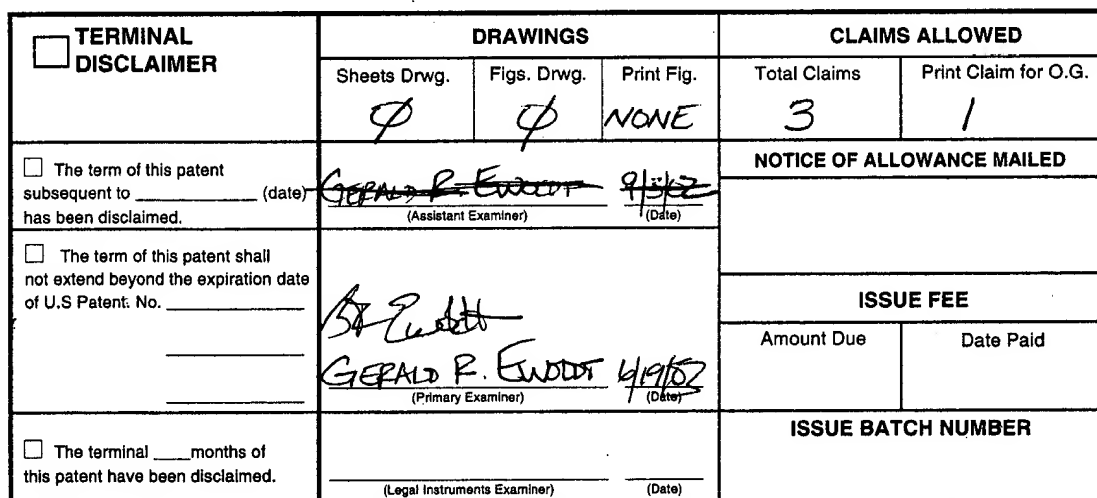 TERMINAL
DISCLAIMER
DRAWINGS
CLAIMS ALLOWED
Sheets Drwg.
Figs. Drwg.
Print Fig.
Total Claims
Print Claim for O.G.
Ø
Ø
NONE
3
1
The term of this patent
subsequent to ____________ (date)
has been disclaimed.
GERALD R. EWOLDT
(Assistant Examiner)
(Date)
NOTICE OF ALLOWANCE MAILED
The term of this patent shall
not extend beyond the expiration date
of U.S Patent. No. ____________
GERALD R. EWOLDT
(Primary Examiner)
(Date)
ISSUE FEE
Amount Due
Date Paid
The terminal ____months of
this patent have been disclaimed.
(Legal Instruments Examiner)
(Date)
ISSUE BATCH NUMBER